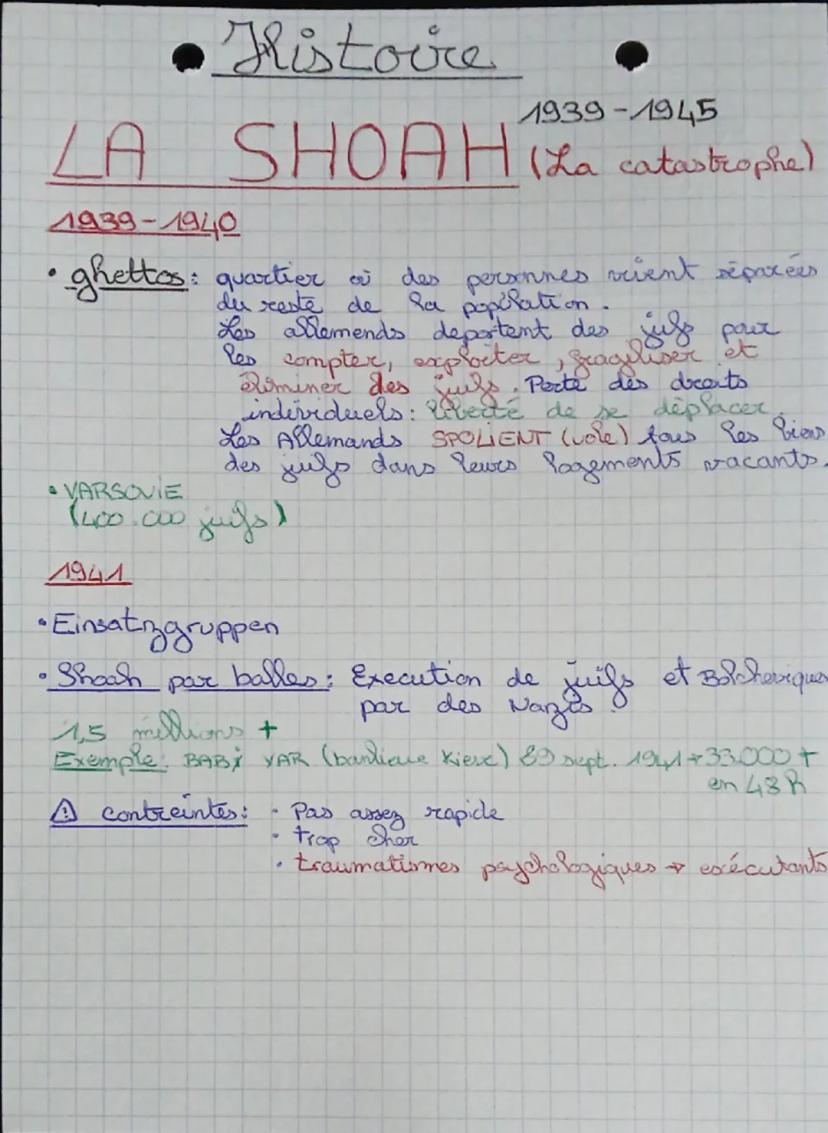 Histoire
1939-1945
LA SHOAH (La catastrophe)
1939-1940
• ghettos: quartier où des personnes vivent séparées
du reste de la population.
Les allemends deportent des juifs pour
les compter, exploiter, fragiliser et
éliminer des juifs. Perte des droits
individuels: liberté de se déplacer.
Les Allemands SPOLIENT (vole) tous les biens
des juifs dans leurs logements vacants.
• VARSOVIE
(400.000 juifs)
1941
• Einsatzgruppen
• Shoah par balles: Execution de juifs et Bolcheviques
par des Nazis.
1,5 millions +
Exemple: BABI YAR (banlieue Kiev) 29 sept. 1941 → 33.000 +
en 48h
⚠ contreintes: • Pas assez rapide
• trop cher
• traumatismes psychologiques → exécutants